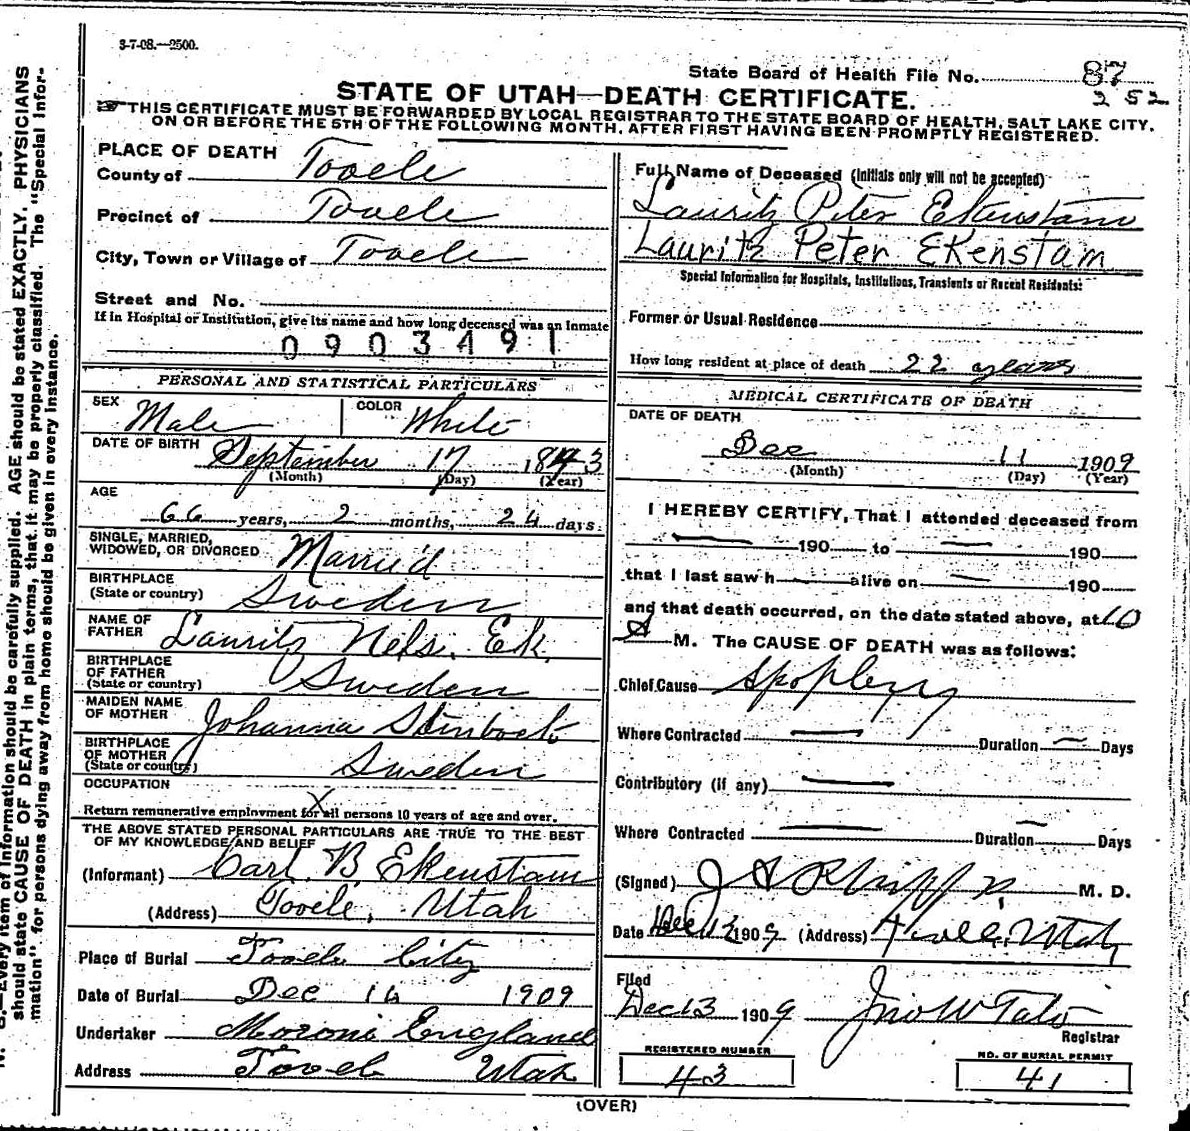 3-7-08.—2500.
State Board of Health File No. 87
2 52
STATE OF UTAH—DEATH CERTIFICATE.
THIS CERTIFICATE MUST BE FORWARDED BY LOCAL REGISTRAR TO THE STATE BOARD OF HEALTH, SALT LAKE CITY,
ON OR BEFORE THE 5TH OF THE FOLLOWING MONTH, AFTER FIRST HAVING BEEN PROMPTLY REGISTERED.
PLACE OF DEATH
County of Tooele
Precinct of Tooele
City, Town or Village of Tooele
Street and No.
If in Hospital or Institution, give its name and how long deceased was an Inmate
0903491
PERSONAL AND STATISTICAL PARTICULARS
SEX Male COLOR White
DATE OF BIRTH September 17 1843
(Month) (Day) (Year)
AGE
66 years, 2 months, 24 days.
SINGLE, MARRIED,
WIDOWED, OR DIVORCED Married
BIRTHPLACE
(State or country) Sweden
NAME OF
FATHER Lauritz Nels. Ek.
BIRTHPLACE
OF FATHER
(State or country) Sweden
MAIDEN NAME
OF MOTHER Johanna Stinbock
BIRTHPLACE
OF MOTHER
(State or country) Sweden
OCCUPATION
Return remunerative employment for all persons 10 years of age and over. X
THE ABOVE STATED PERSONAL PARTICULARS ARE TRUE TO THE BEST
OF MY KNOWLEDGE AND BELIEF
(Informant) Carl B. Ekenstam
(Address) Tooele, Utah
Place of Burial Tooele City
Date of Burial Dec 1909
Undertaker Moroni England
Address Tooele Utah
Full Name of Deceased (Initials only will not be accepted)
Lauritz Peter Ekenstam
Lauritz Peter Ekenstam
Special Information for Hospitals, Institutions, Transients or Recent Residents:
Former or Usual Residence
How long resident at place of death 22 years
MEDICAL CERTIFICATE OF DEATH
DATE OF DEATH
Dec 11 1909
(Month) (Day) (Year)
I HEREBY CERTIFY, That I attended deceased from
— 190 to — 190
that I last saw h — alive on — 190
and that death occurred, on the date stated above, at 10
A M. The CAUSE OF DEATH was as follows:
Chief Cause Apoplexy
Where Contracted — Duration — Days
Contributory (if any) —
Where Contracted — Duration — Days
(Signed) M. D.
Date Dec 1909 (Address) Tooele, Utah
Filed
Dec 13 1909 Jno W Tate
Registrar
REGISTERED NUMBER
43
NO. OF BURIAL PERMIT
41
(OVER)
N. B.—Every item of Information should be carefully supplied. AGE should be stated EXACTLY. PHYSICIANS
should state CAUSE OF DEATH in plain terms, that it may be properly classified. The "Special Infor-
mation" for persons dying away from home should be given in every instance.